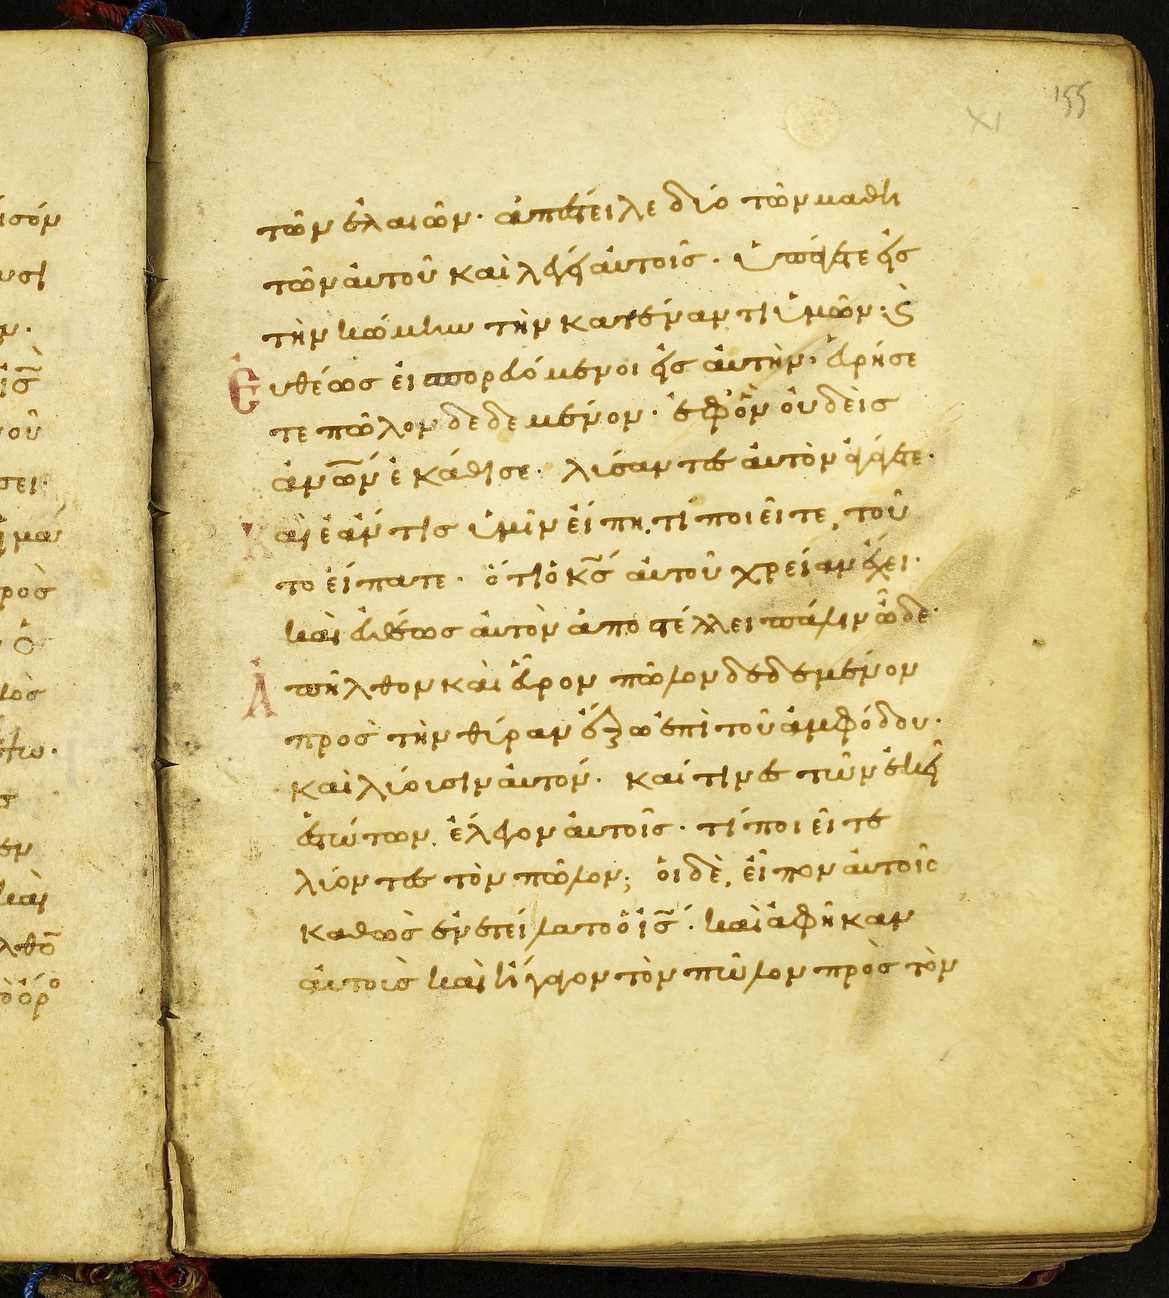 155
XI
τῶν ἐλαιῶν· ἀπιστείλε διό τῶν μαθι
τῶν αὐτοῦ καὶ λέγει αὐτοῖς· ὑπάγετε εἰς
τὴν κώμιν τὴν κατέναντι ὑμῶν· ϗ
εὐθέως εἰπορευόμενοι εἰς αὐτὴν· εὑρήσε
τε πῶλον δεδεμένον· ἐφ' ὃν οὐδεὶς
ἀν̅ω̅ν ἐκάθισε· λισαντες αὐτὸν ἀγάγετε·
Καὶ ἐάν τις ὑμῖν εἴπη, τί ποιεῖτε, τοῦ
το εἴπατε· ὅτι ὁ κ̅ς αὐτοῦ χρείαν ἔχει·
καὶ εὐθέως αὐτὸν ἀποστέλλει πάλιν ὧδε·
Ἀπῆλθον καὶ εὗρον πῶλον δεδεμένον
πρὸς τὴν θίραν ἔξω ἐπὶ τοῦ ἀμφόδου·
καὶ λιόισιν αὐτόν· καί τινες τῶν ἐκεῖ
ἑστώτων, ἔλεγον αὐτοῖς· τί ποιεῖτε
λιόντες τὸν πῶλον; οἱ δὲ, εἶπον αὐτοῖς
καθὼς ἐνετείλατο ὁ ἰ̅ς· καὶ ἀφῆκαν
αὐτοὶς καὶ ἤγαγον τὸν πῶλον πρὸς τὸν